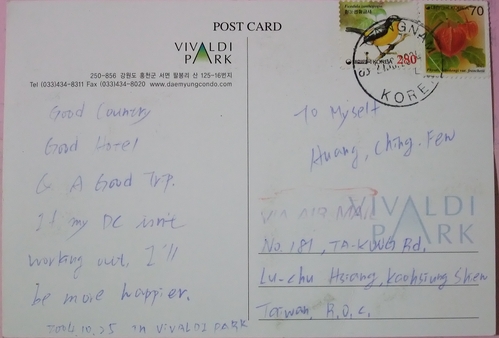 POST CARD
VIVALDI
PARK
250-856 강원도 홍천군 서면 팔봉리 산 125-16번지
Tel (033)434-8311 Fax (033)434-8020 www.daemyungcondo.com
Good Country
Good Hotel
& A Good Trip.
If my DC isn't
working out, I'll
be more happier.
2004.10.25 in VIVALDI PARK
KOREA
280
70
KOREA
To Myself
Huang, Ching-Few
VIA AIR MAIL
VIVALDI
PARK
No. 181, TA-KUNG Rd,
Lu-chu Hsiang, Kaohsiung Shien
Taiwan, R.O.C.